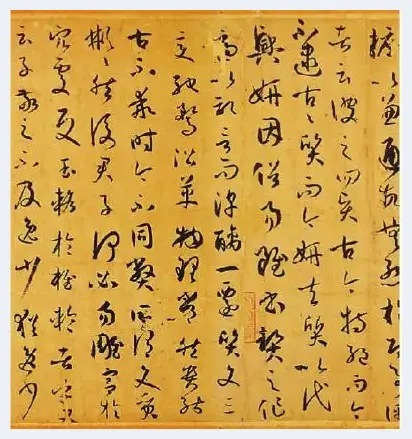 摽以兼通故無慚於即事評
者云彼之四賢古今特絕而今
不逮古古質而今妍夫質以代
興妍因俗易雖書契之作
適以記言而淳醨一遷質文三
變馳騖沿革物理常然貴能
古不乖時今不同弊所謂文質
彬彬然後君子何必易雕宮於
穴處反玉輅於椎輪者乎又
云子敬之不及逸少猶逸少